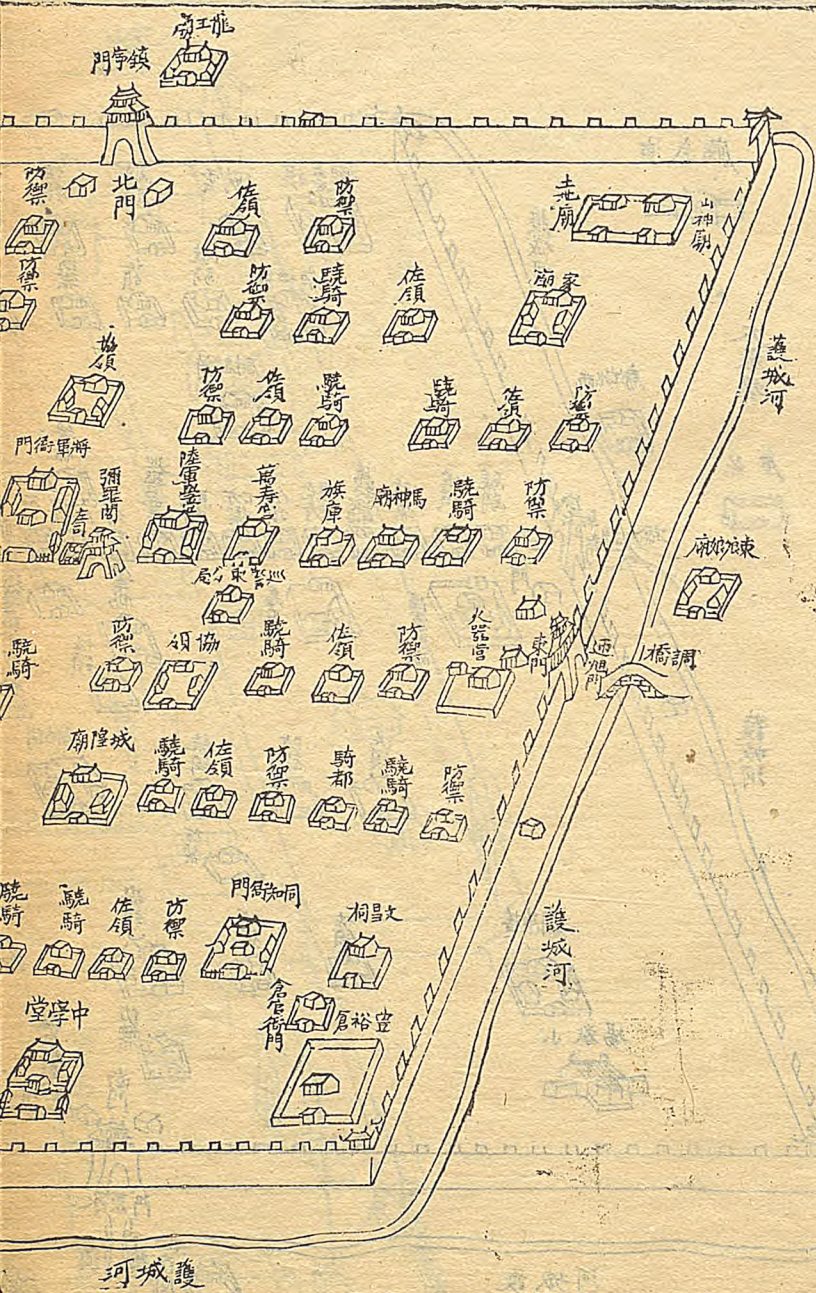 龍王廟
鎮寧門
北門
防禦
佐領
防禦
土地廟
山神廟
防禦
防禦
驍騎
佐領
家廟
護城河
協領
防禦
佐領
驍騎
驍騎
佐領
防禦
將軍衙門
彌羅閣
陸軍學堂
萬壽宮
旗庫
馬神廟
驍騎
防禦
巡警東分局
驍騎
防禦
協領
驍騎
佐領
防禦
火器營
東門
迎旭門
調橋
城隍廟
驍騎
佐領
防禦
騎都
驍騎
防禦
驍騎
驍騎
佐領
防禦
同知衙門
文昌祠
護城河
中學堂
倉官衙門
豐裕倉
護城河